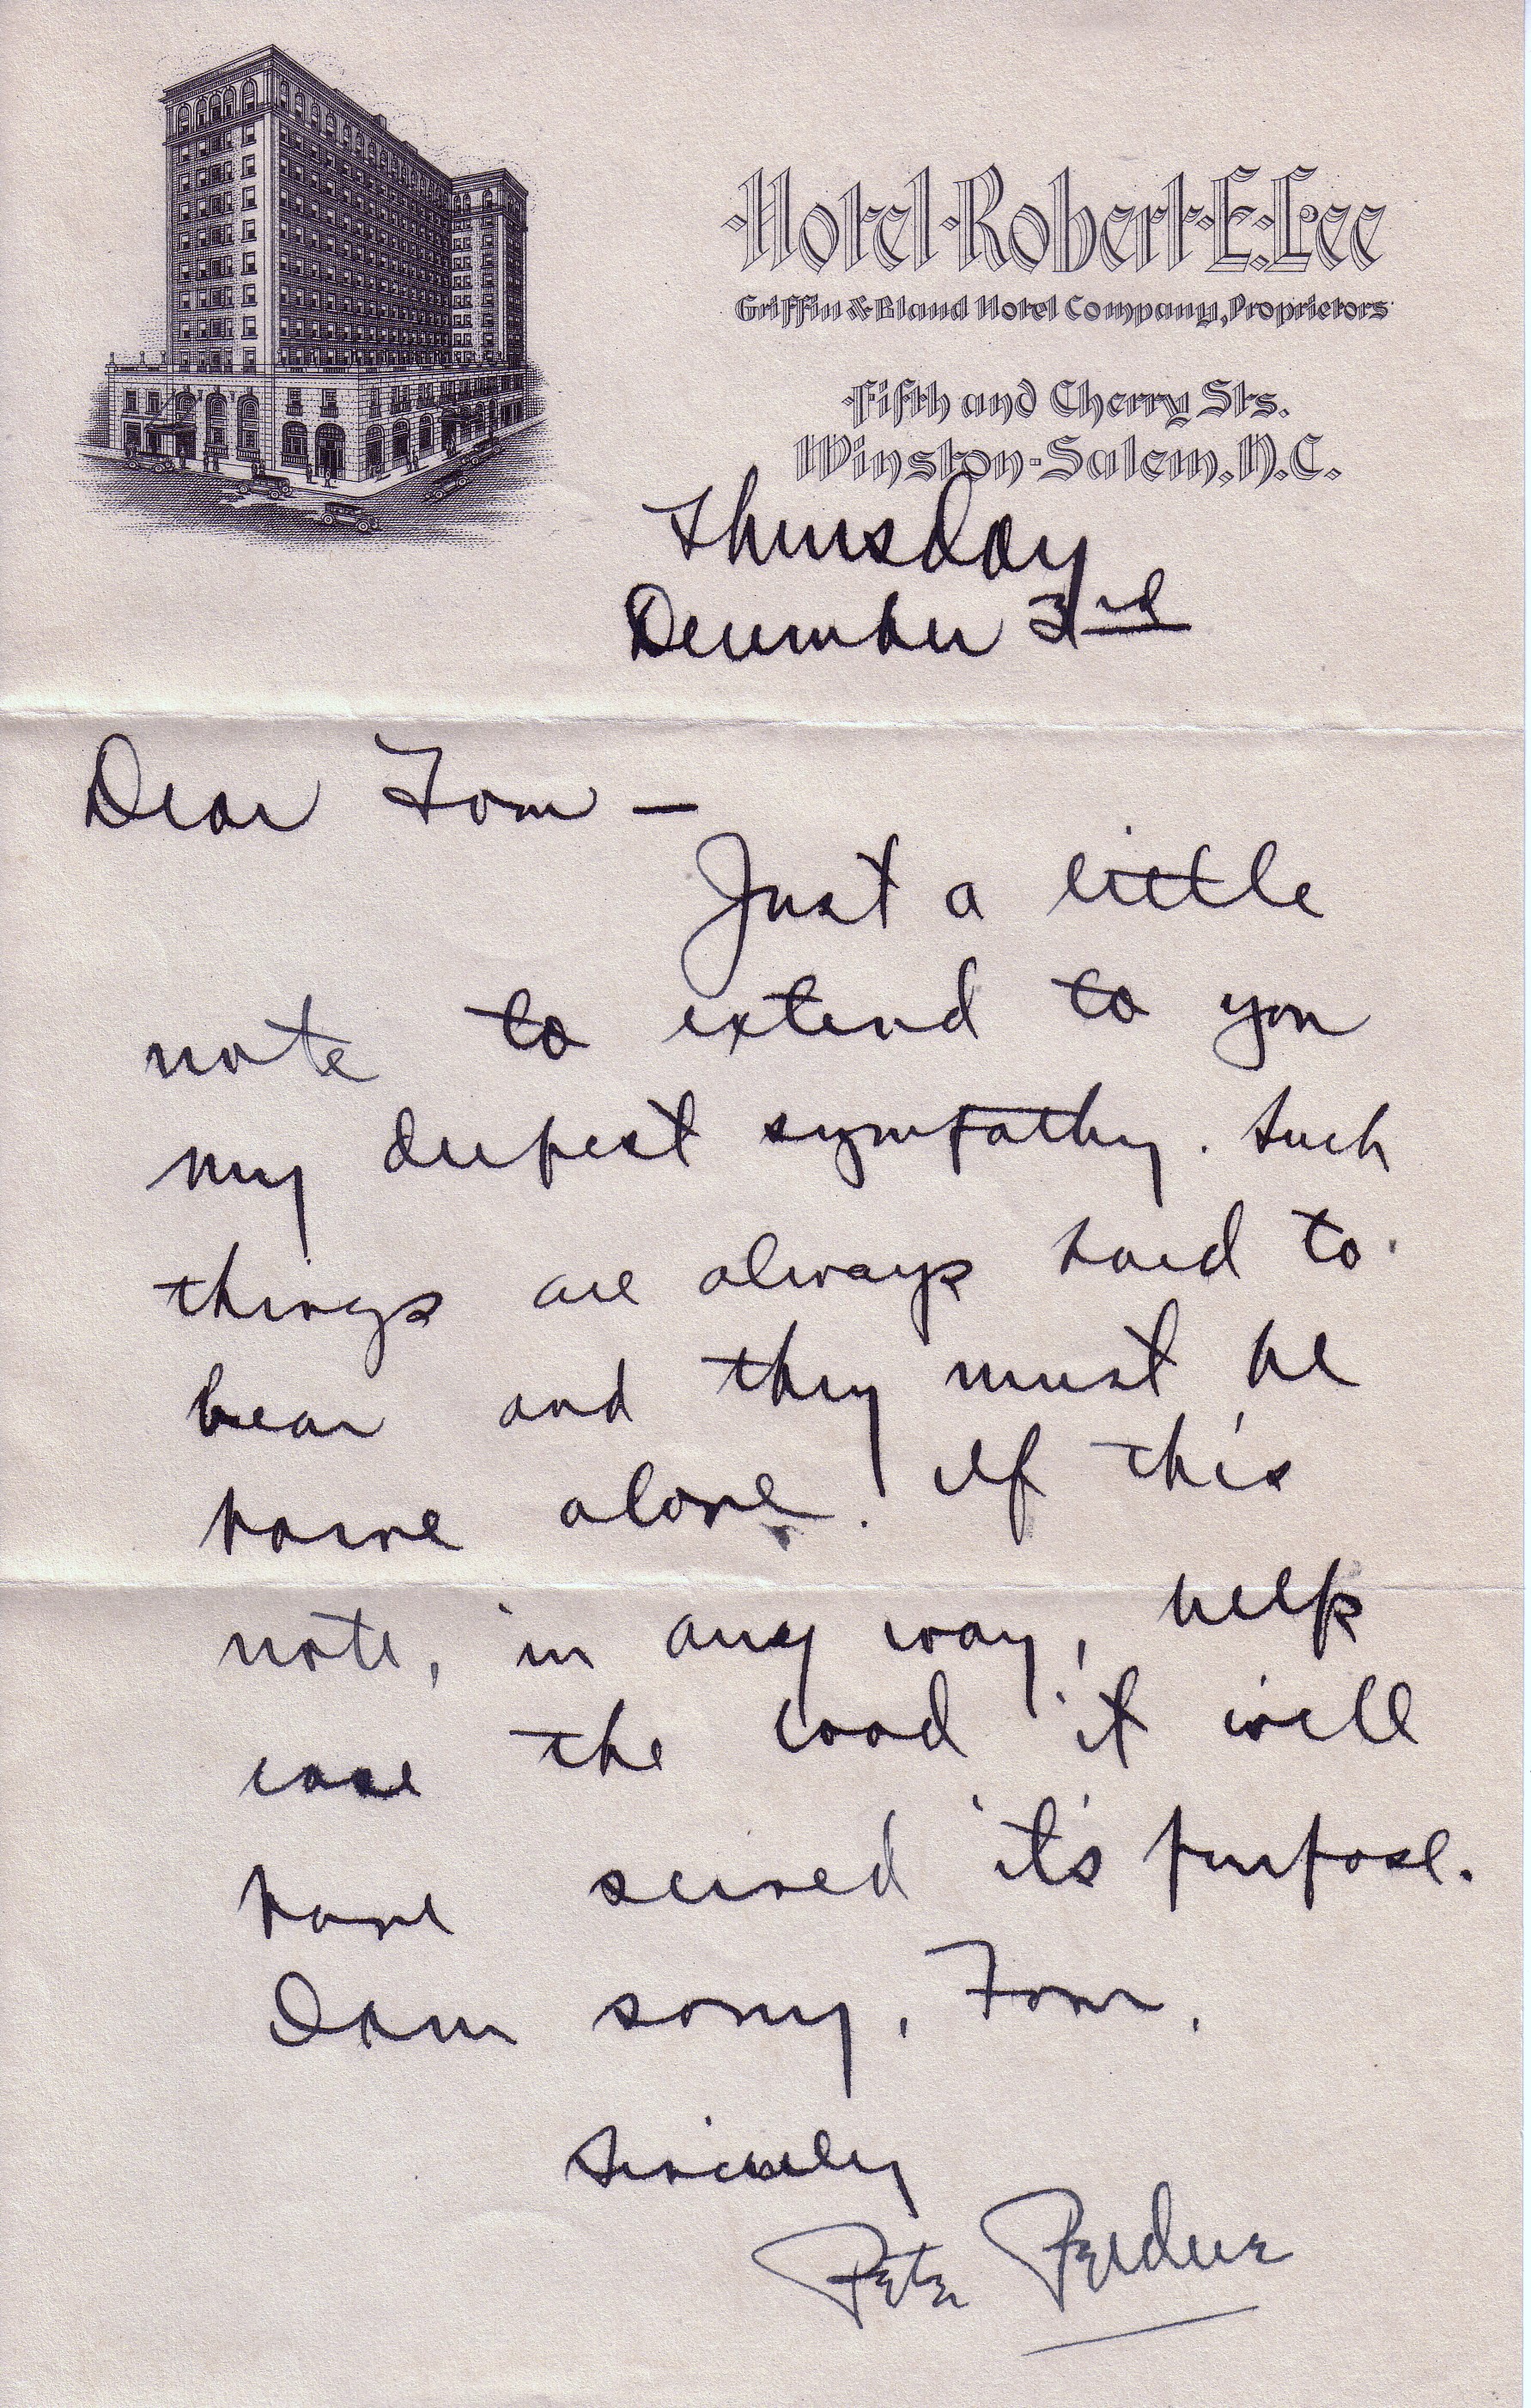 Hotel Robert E. Lee
Griffin & Bland Hotel Company, Proprietors
Fifth and Cherry Sts.
Winston-Salem, N.C.
Thursday
December 3rd
Dear Tom —
Just a little
note to extend to you
my deepest sympathy. Such
things are always hard to
bear and they must be
borne alone. If this
note, in any way, helps
ease the load it will
have served it's purpose.
Damn sorry, Tom.
Sincerely
Pete Perdue